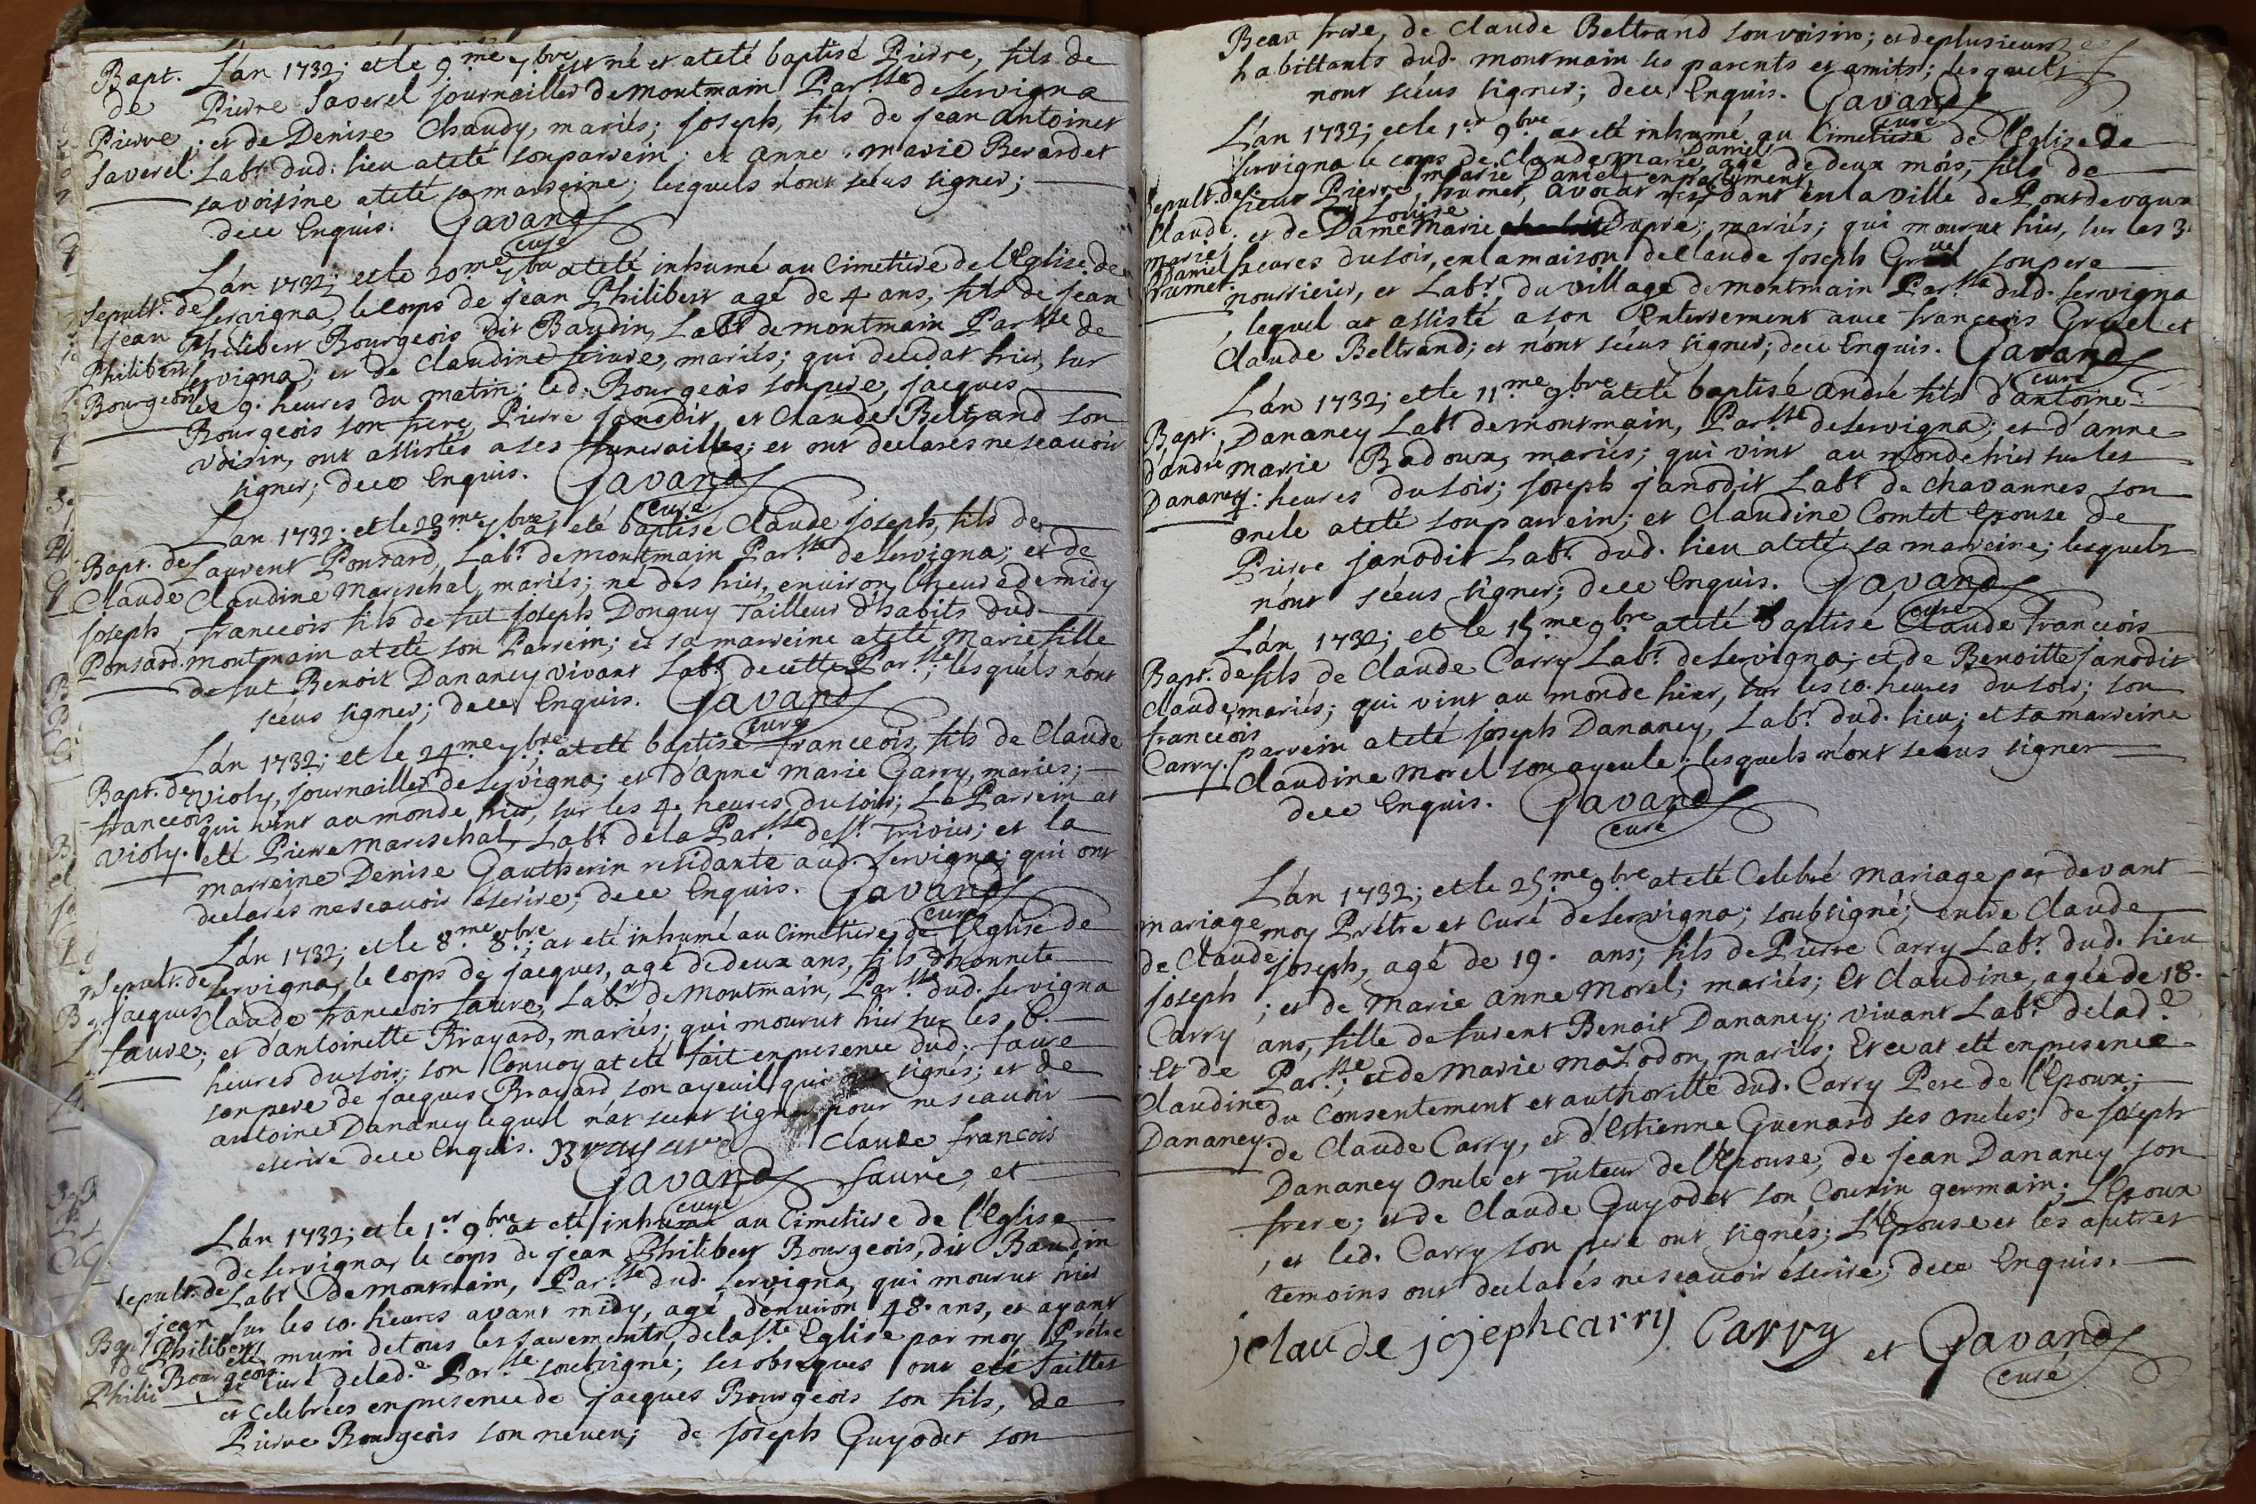 Bapt.
de
Pierre
Saverel.
L'an 1732; et le 9.me 7.bre est né et at eté baptisé Pierre, fils de
Pierre Saverel journaillier de montmain Par.sse de Servigna
; et de Denise Chaudy, mariés; joseph, fils de jean Antoinet
Lab.r dud. lieu at eté son parrein; et anne marie Berardet
sa voisine at eté sa marreine; lesquels n'ont sceus signer;
de ce Enquis. Gavand
curé
Sepult. de
jean
Philibert
Bourgeois
L'an 1732; et le 20.me 7.bre at eté inhumé au Cimetiere de l'Eglise de
Servigna, le corps de jean Philibert agé de 4 ans, fils de jean
Philibert Bourgeois dit Baudin, Lab.r de montmain Par.sse de
Servigna; et de Claudine faivre, mariés; qui decedat hier, sur
les 9. heures du matin; led. Bourgeois son pere, jacques
Bourgeois son frere, Pierre janodit, et Claude Beltrand son
voisin, ont assistés a ses funerailles; et ont declarés ne scavoir
signer; de ce Enquis. Gavand
curé
Bapt. de
Claude
joseph
Ponsard.
L'an 1732; et le 23.me 7.bre at eté baptisé Claude joseph, fils de
Laurent Ponsard, Lab.r de montmain Par.sse de Servigna; et de
Claudine Mareschal, mariés; né des hier, environ l'heure de midy
; franceois fils de fut joseph Donguy Tailleur d'habits dud.
montmain at eté son Parrein; et sa marreine at eté Marie fille
de fut Benoit Dananey vivant Lab.r de cette Par.sse; lesquels n'ont
sceus signer; de ce Enquis. Gavand
curé
Bapt. de
franceois
Violy.
L'an 1732; et le 24.me 7.bre; at eté baptisé franceois, fils de Claude
Violy, journaillier de Servigna; et d'anne marie Garry, mariés;
qui vint au monde hier, sur les 4. heures du soir; Le Parrein at
eté Pierre Mareschal, Lab.r de la Par.sse de S.t Trivier; et la
marreine Denise Gautherin residante aud. Servigna; qui ont
declarés ne scavoir escrire; de ce Enquis. Gavand
curé
Sepult. de
jacques
faure;
L'an 1732; et le 8.me 8.bre; at eté inhumé au Cimetiere de l'Eglise de
Servigna, le corps de jacques, agé de deux ans, fils d'honnete
Claude franceois faure, Lab.r de Montmain, Par.sse dud. Servigna
; et d'antoinette Brayard, mariés; qui mourut hier sur les 6.
heures du soir; son Convoy at eté fait en presence dud. faure
son pere de jacques Brayard, son ayeuil qui signés; et de
antoine Dananey lequel n'at sceut signer pour ne scavoir
escrire de ce Enquis. Claude francois
Gavand faure, et
curé
Sepult. de
jean
Philibert
Bourgeois.
L'an 1732; et le 1.er 9.bre at eté inhumé au Cimetiere de l'Eglise
de Servigna, le corps de jean Philibert Bourgeois, dit Baudin
Lab.r de montmain, Par.sse dud. Servigna, qui mourut hier
sur les 10. heures avant midy, agé d'environ 48. ans, et ayant
eté muni de tous les sacrements de la S.te Eglise par moy Prêtre
et Curé de lad.e Par.sse soubsigné; ses obseques ont eté faittes
et celebrées en presence de jacques Bourgeois son fils, de
Pierre Bourgeois son neveu; de joseph Guyodet son
Beau frere, de Claude Beltrand son voisin; et de plusieurs
habittants dud. montmain ses parents et amits; lesquels
n'ont sceus signer; de ce Enquis. Gavand
curé
Sepult. de
Claude
marie
Daniel
L'an 1732; et le 1.er 9.bre at eté inhumé au Cimetiere de l'Eglise de
Servigna le corps de Claude marie Daniel, agé de deux mois, fils de
sieur Pierre marie Daniel avocat en parlement residant en la Ville de Pontdevaux
; et de Dame Louise Marie Dupré; mariés; qui mourut hier, sur les 3.
heures du soir, en la maison de Claude joseph Gruel son pere
nourricier, et Lab.r du village de montmain Par.sse dud. Servigna
, lequel at assisté a son Enterrement avec franceois Gruel et
Claude Beltrand; et n'ont sceus signer; de ce Enquis. Gavand
curé
Bapt.
d'andré
Dananey
L'an 1732; et le 11.me 9.bre at eté baptisé andré fils d'antoine
Dananey Lab.r de montmain, Par.sse de Servigna; et d'anne
marie Badoux, mariés; qui vint au monde hier sur les
heures du soir; joseph janodit Lab.r de chavannes son
oncle at eté son parrein; et Claudine Comtet Epouse de
Pierre janodit Lab.r dud. lieu at eté sa marreine; lesquels
n'ont sceus signer; de ce Enquis. Gavand
curé
Bapt. de
Claude
franceois
Carry.
L'an 1732; et le 15.me 9.bre at eté baptisé Claude franceois
fils de Claude Carry Lab.r de Servigna; et de Benoitte janodit
mariés; qui vint au monde hier, sur les 10. heures du soir; son
parrein at eté joseph Dananey, Lab.r dud. lieu; et sa marreine
Claudine Morel son ayeule; lesquels n'ont sceus signer
de ce Enquis. Gavand
curé
mariage
de Claude
joseph
Carry
Et de
Claudine
Dananey.
L'an 1732; et le 25.me 9.bre at eté Celebré Mariage par devant
moy Prêtre et Curé de Servigna; soubsigné; entre Claude
joseph, agé de 19. ans; fils de Pierre Carry Lab.r dud. lieu
; et de Marie Anne Morel; mariés; Et Claudine, agée de 18.
ans, fille de furent Benoit Dananey; vivant Lab.r de lad.e
Par.sse; et de Marie Mazodon, mariés; Et ce at eté en presence
du Consentement et authorité dud. Carry Pere de l'Epoux;
de Claude Carry, et d'Estienne Guenard ses oncles; de joseph
Dananey oncle et Tuteur de l'Epouse, de jean Dananey son
frere; et de Claude Guyodet son Cousin germain; L'Epoux
, et led. Carry son pere ont signés; L'Epouse et les autres
temoins ont declarés ne scavoir escrire; de ce Enquis.
claude joseph carry Carry et Gavand
curé